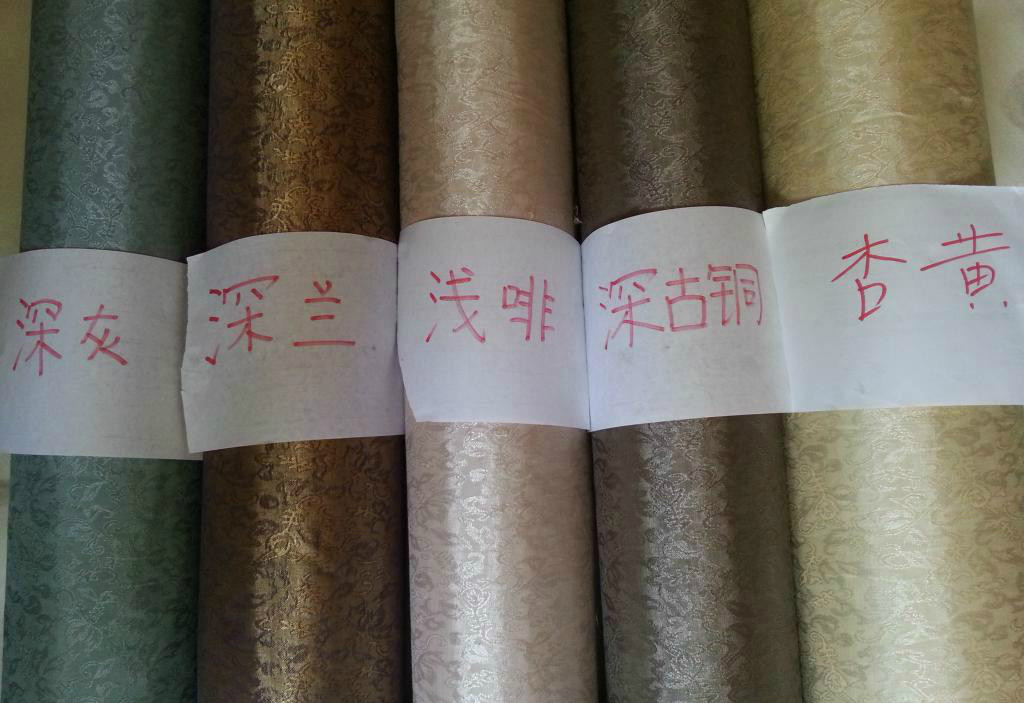 深灰
深兰
浅啡
深古铜
杏黄